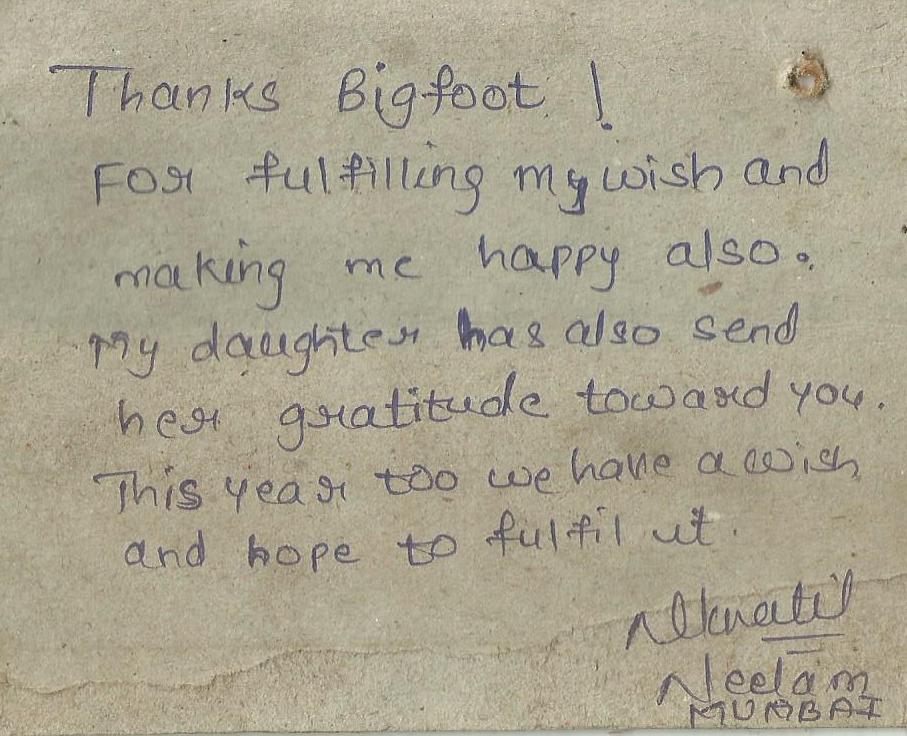 Thanks Bigfoot !
For fulfilling my wish and
making me happy also.
My daughter has also send
her gratitude toward you.
This year too we have a wish
and hope to fulfil it.
Neelam
MUMBAI